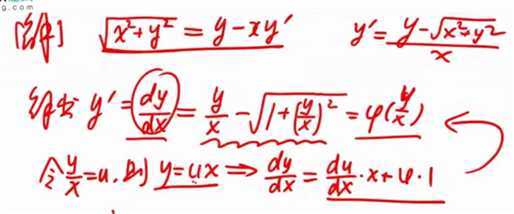 g.com
[解] √(x²+y²) = y - xy′ y′ = (y-√(x²+y²))/x
解出 y′ = dy/dx = y/x - √(1+(y/x)²) = φ(y/x)
令 y/x = u, 则 y = ux ⇒ dy/dx = du/dx · x + u · 1